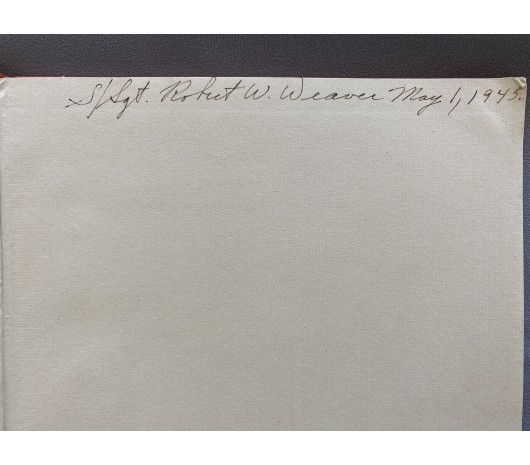 S/Sgt. Robert W. Weaver May 1, 1945.